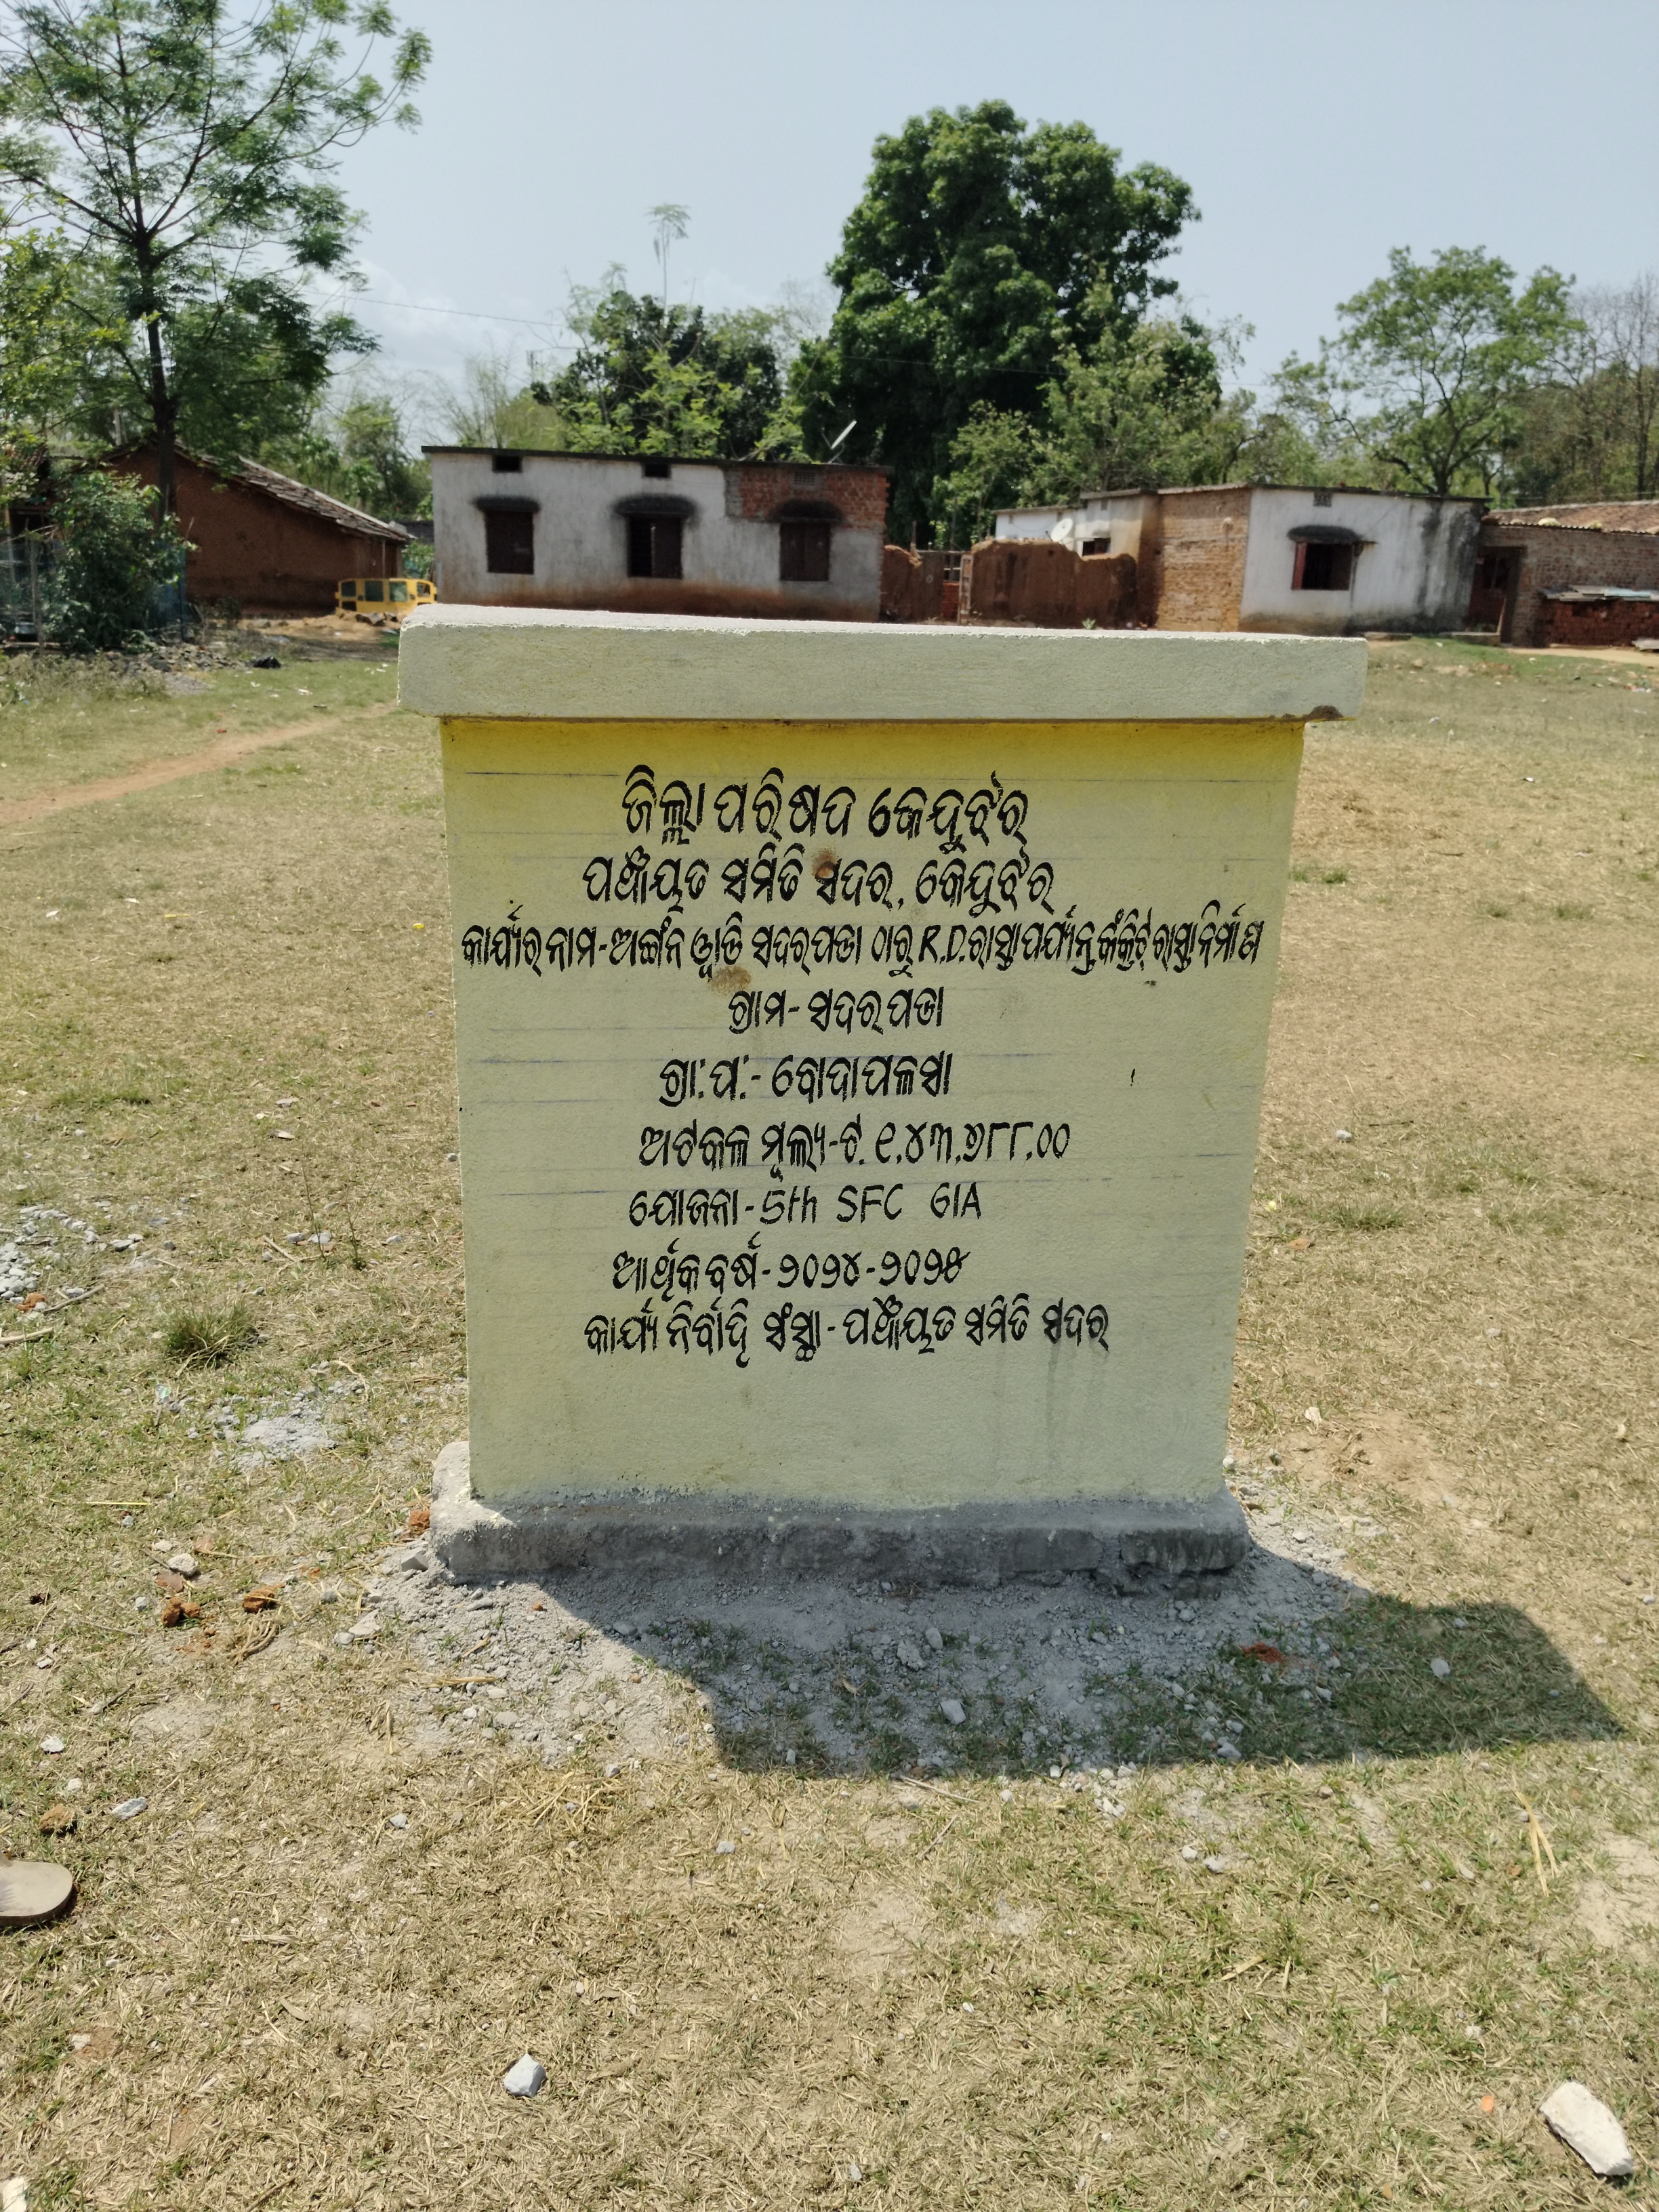 ଜିଲ୍ଲା ପରିଷଦ କେନ୍ଦୁଝର
ପଞ୍ଚାୟତ ସମିତି ସଦର, କେନ୍ଦୁଝର
କାର୍ଯ୍ୟର ନାମ-ଅଙ୍ଗନ ୱାଡି ସଦରପଡା ଠାରୁ R.D. ରାସ୍ତା ପର୍ଯ୍ୟନ୍ତ କଂକ୍ରିଟ୍ ରାସ୍ତା ନିର୍ମାଣ
ଗ୍ରାମ- ସଦରପଡା
ଗ୍ରା.ପ.- ବୋଦାପଳସା
ଅଟକଳ ମୂଲ୍ୟ-ଟ. ୧,୪୩,୭୮୮.୦୦
ଯୋଜନା-5th SFC GIA
ଆର୍ଥିକ ବର୍ଷ-୨୦୨୪-୨୦୨୫
କାର୍ଯ୍ୟ ନିର୍ବାହି ସଂସ୍ଥା-ପଞ୍ଚାୟତ ସମିତି ସଦର